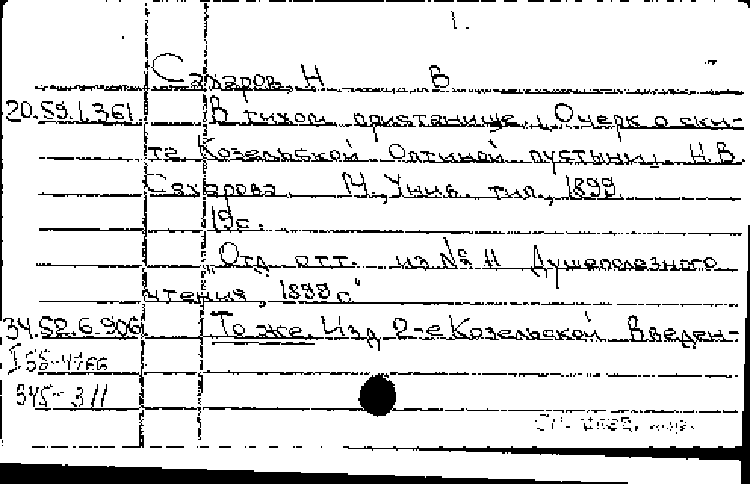 1.
Сахаров, Н В
20.59.1.361. В тихом пристанище. (Очерк о ски-
те Козельской Оптиной пустыни). Н.В.
Сахарова. М., Унив. тип., 1899
19с.
"Отд. отт. из № 11 Душеполезного
чтения, 1899 г."
34.52.6.906 То же. Изд. 2-е Козельской Введен-
I 55-4766
345-311
См. след. карт.